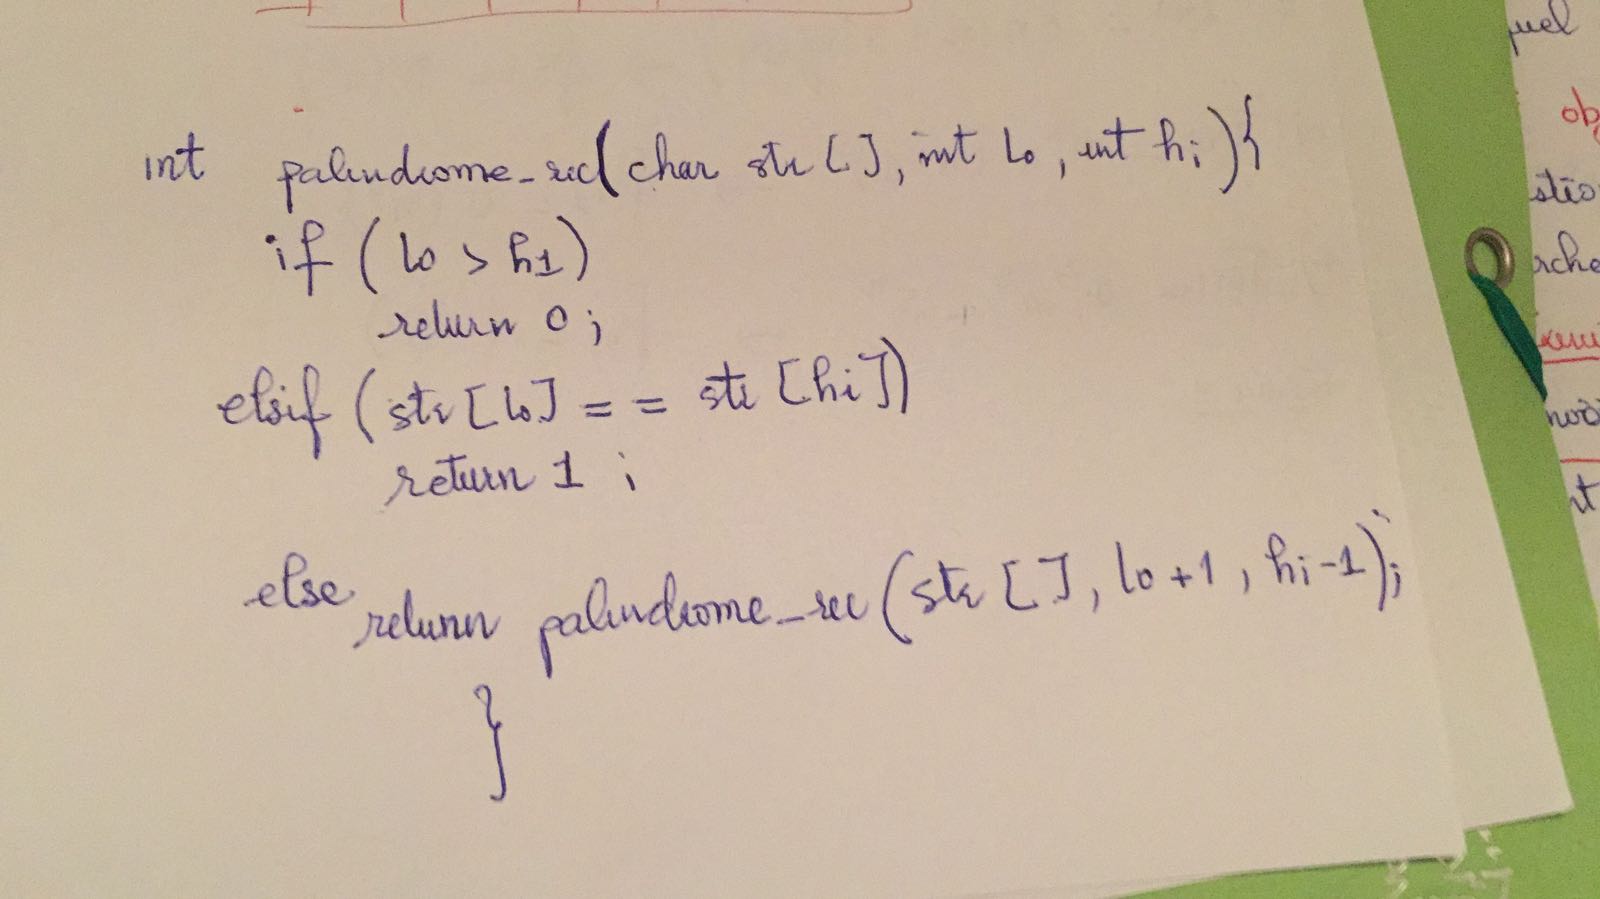 int palindrome_rec(char str [], int lo, int hi){
if (lo > hi)
return 0;
elsif (str[lo] == str [hi])
return 1;
else return palindrome_rec(str [], lo+1, hi-1);
}
quel
obj
stio
rche
noi
nt